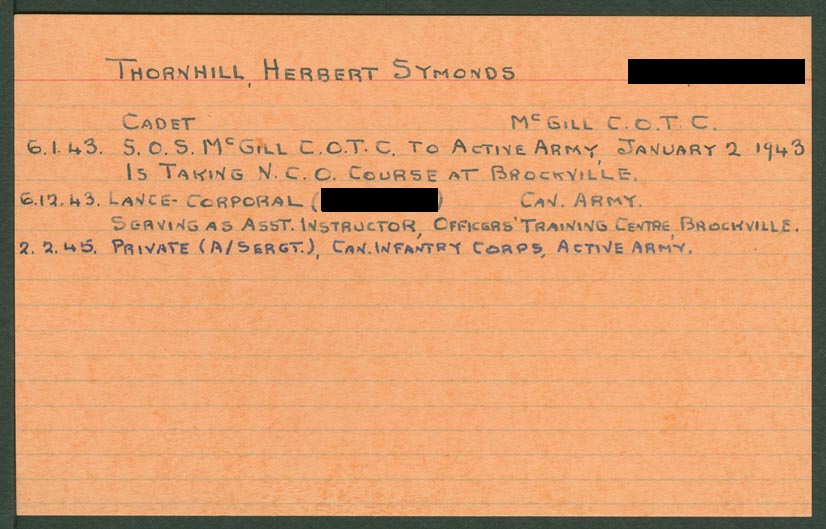 Thornhill, Herbert Symonds
Cadet McGill C.O.T.C.
6.1.43. S.O.S. McGill C.O.T.C. to Active Army, January 2 1943
Is Taking N.C.O. Course at Brockville.
6.12.43. Lance-Corporal ( ) Can. Army.
Serving as Asst. Instructor, Officers' Training Centre, Brockville.
2.2.45. Private (A/Sergt.), Can. Infantry Corps, Active Army.